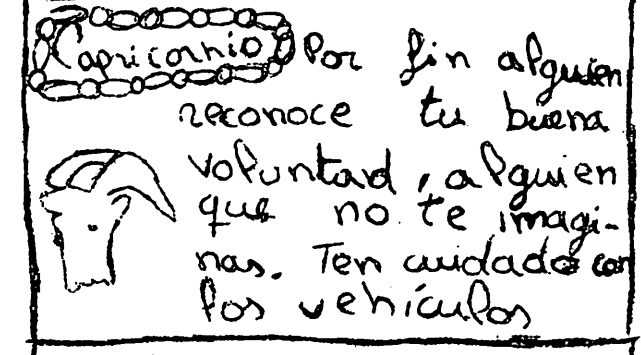 Capricornio Por fin alguien
reconoce tu buena
voluntad, alguien
que no te imagi-
nas. Ten cuidado con
los vehículos